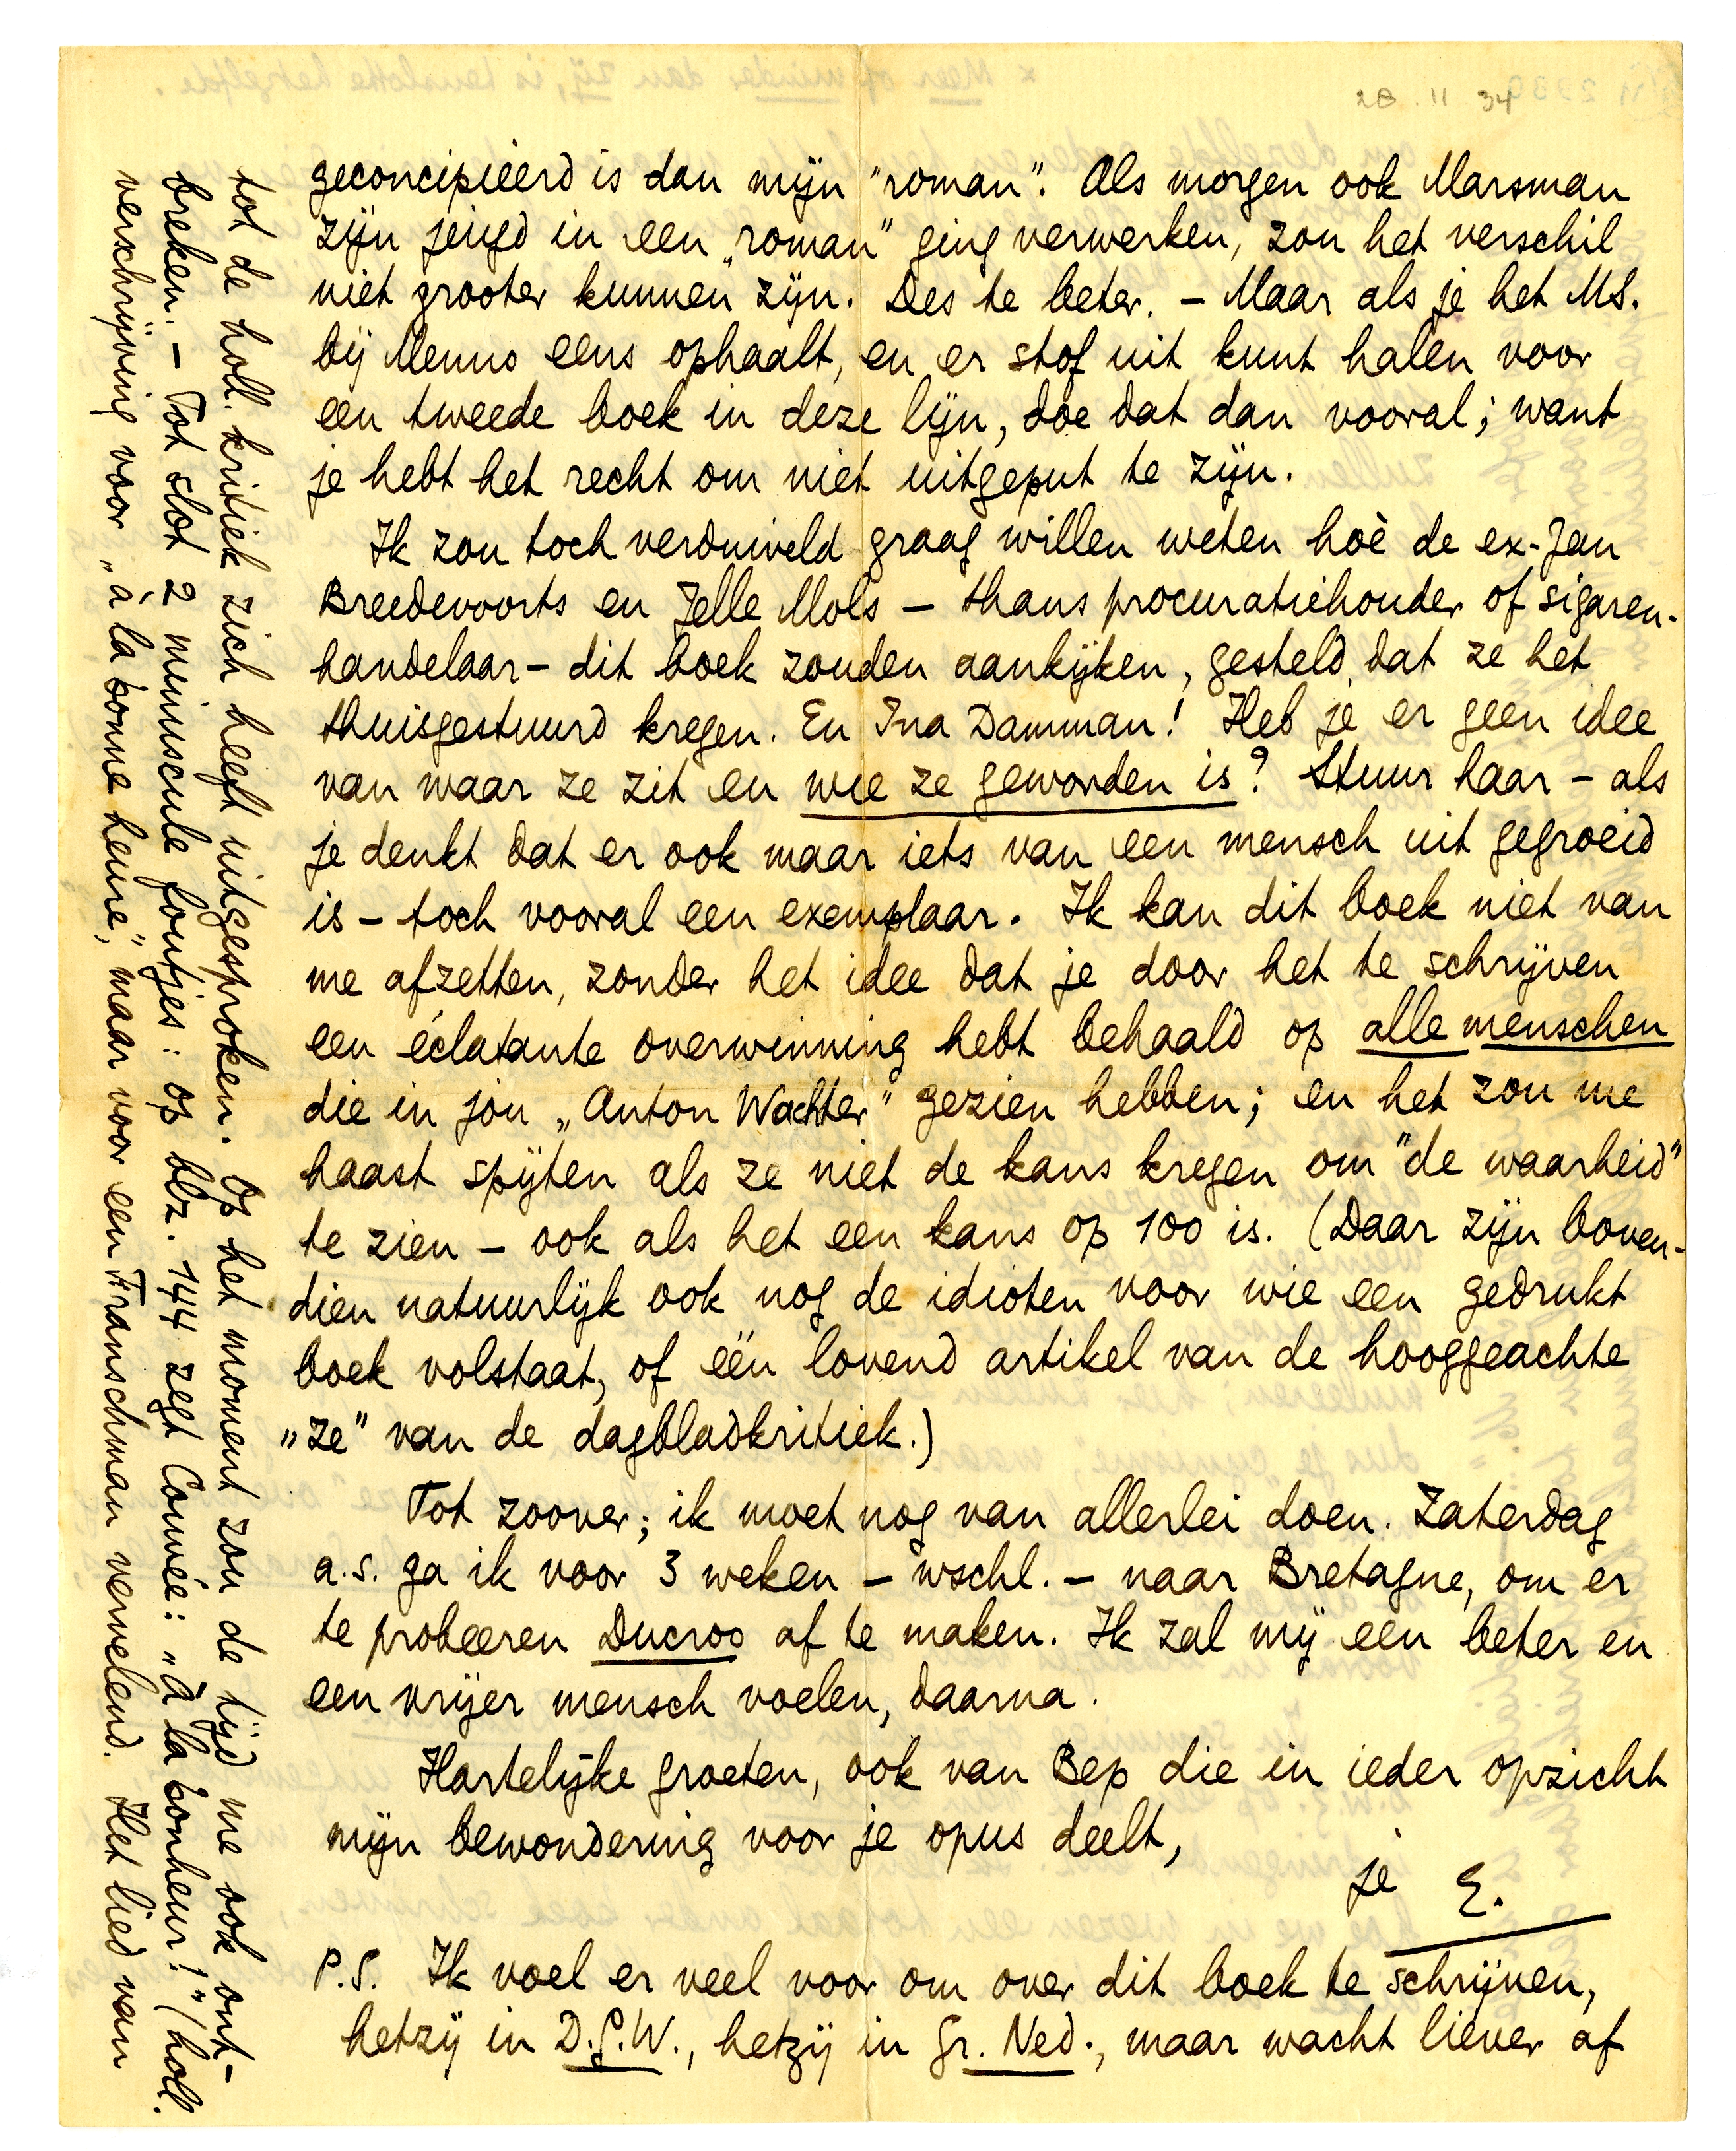 28.11 34
geconcipieerd is dan mijn "roman". Als morgen ook Marsman
zijn jeugd in een „roman" ging verwerken, zou het verschil
niet grooter kunnen zijn. Des te beter. – Maar als je het MS.
bij Menno eens ophaalt, en er stof uit kunt halen voor
een tweede boek in deze lijn, doe dat dan vooral; want
je hebt het recht om niet uitgeput te zijn.
Ik zou toch verduiveld graag willen weten hoè de ex-Jan
Breedevoorts en Jelle Mols – thans procuratiehouder of sigaren-
handelaar – dit boek zouden aankijken, gesteld dat ze het
thuisgestuurd kregen. En Ina Damman! Heb je er geen idee
van waar ze zit en wie ze geworden is? Stuur haar – als
je denkt dat er ook maar iets van een mensch uit gegroeid
is – toch vooral een exemplaar. Ik kan dit boek niet van
me afzetten, zonder het idee dat je door het te schrijven
een éclatante overwinning hebt behaald op alle menschen
die in jou „Anton Wachter" gezien hebben; en het zou me
haast spijten als ze niet de kans kregen om "de waarheid"
te zien – ook als het een kans op 100 is. (Daar zijn boven-
dien natuurlijk ook nog de idioten voor wie een gedrukt
boek volstaat, of één lovend artikel van de hooggeachte
„ze" van de dagbladkritiek.)
Tot zoover; ik moet nog van allerlei doen. Zaterdag
a.s. ga ik voor 3 weken – wschl. – naar Bretagne, om er
te probeeren Ducroo af te maken. Ik zal mij een beter en
een vrijer mensch voelen, daarna.
Hartelijke groeten, ook van Bep die in ieder opzicht
mijn bewondering voor je opus deelt,
je E.
P.S. Ik voel er veel voor om over dit boek te schrijven,
hetzij in D.G.W., hetzij in Gr. Ned., maar wacht liever af
tot de holl. kritiek zich heeft uitgesproken. Op het moment zou de tijd me ook ont-
breken. – Tot slot 2 minuscule foutjes: op blz. 144 zegt Couvée: „à la bonheur!" (holl.
verschrijving voor „à la bonne heure," maar voor een Franschman vervelend. Het lied van